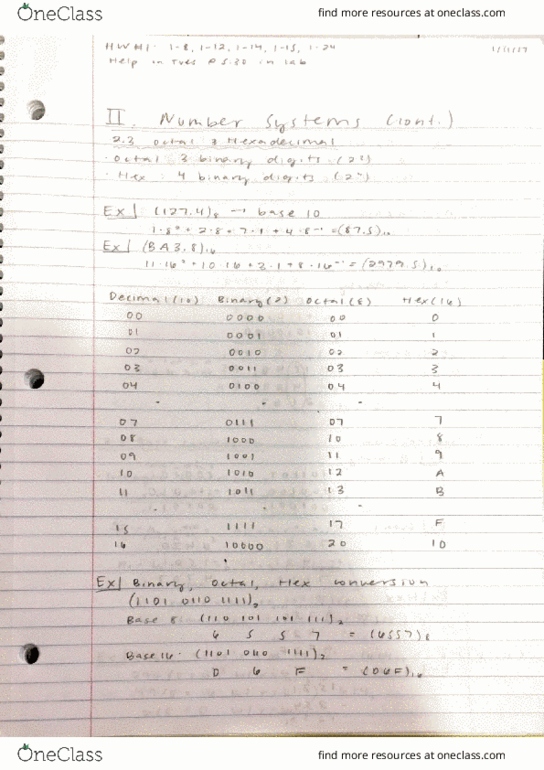 OneClass
find more resources at oneclass.com
HW #1: 1-8, 1-12, 1-14, 1-15, 1-24
Help in Tues @ 5:30 in lab
II. Number Systems (cont.)
2.3 Octal & Hexadecimal
· Octal: 3 binary digits (2³)
· Hex: 4 binary digits (2⁴)
Ex| (127.4)₈ → base 10
1·8² + 2·8 + 7·1 + 4·8⁻¹ = (87.5)₁₀
Ex| (BA3.8)₁₆
11·16² + 10·16 + 3·1 + 8·16⁻¹ = (2979.5)₁₀
Decimal(10) Binary(2) Octal(8) Hex(16)
00 0000 00 0
01 0001 01 1
02 0010 02 2
03 0011 03 3
04 0100 04 4
07 0111 07 7
08 1000 10 8
09 1001 11 9
10 1010 12 A
11 1011 13 B
15 1111 17 F
16 10000 20 10
Ex| Binary, Octal, Hex conversion
(1101 0110 1111)₂
Base 8: (110 101 101 111)₂
6 5 5 7 = (6557)₈
Base 16: (1101 0110 1111)₂
D 6 F = (D6F)₁₆
OneClass
find more resources at oneclass.com